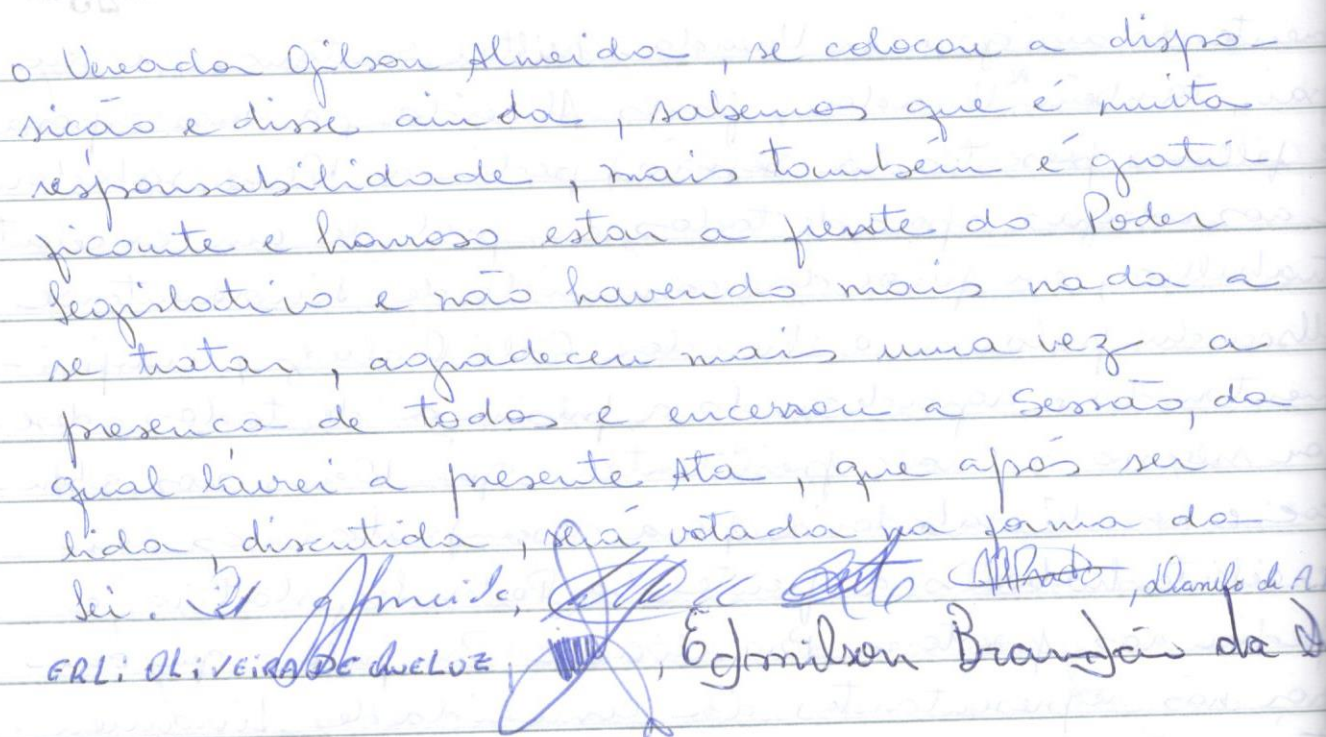 o Vereador Gilson Almeida, se colocou a dispo-
sicão e disse ainda, sabemos que é muita
responsabilidade, mais também é grati-
ficante e honroso estar a frente do Poder
Legislativo e não havendo mais nada a
se tratar, agradeceu mais uma vez a
presenca de todos e encerrou a Sessão, da
qual lavrei a presente Ata, que após ser
lida, discutida, será votada na forma da
Lei. Almeida, Prado, Danilo de A
ERLI OLIVEIRA DE QUELUZ, , Edmilson Brandão da